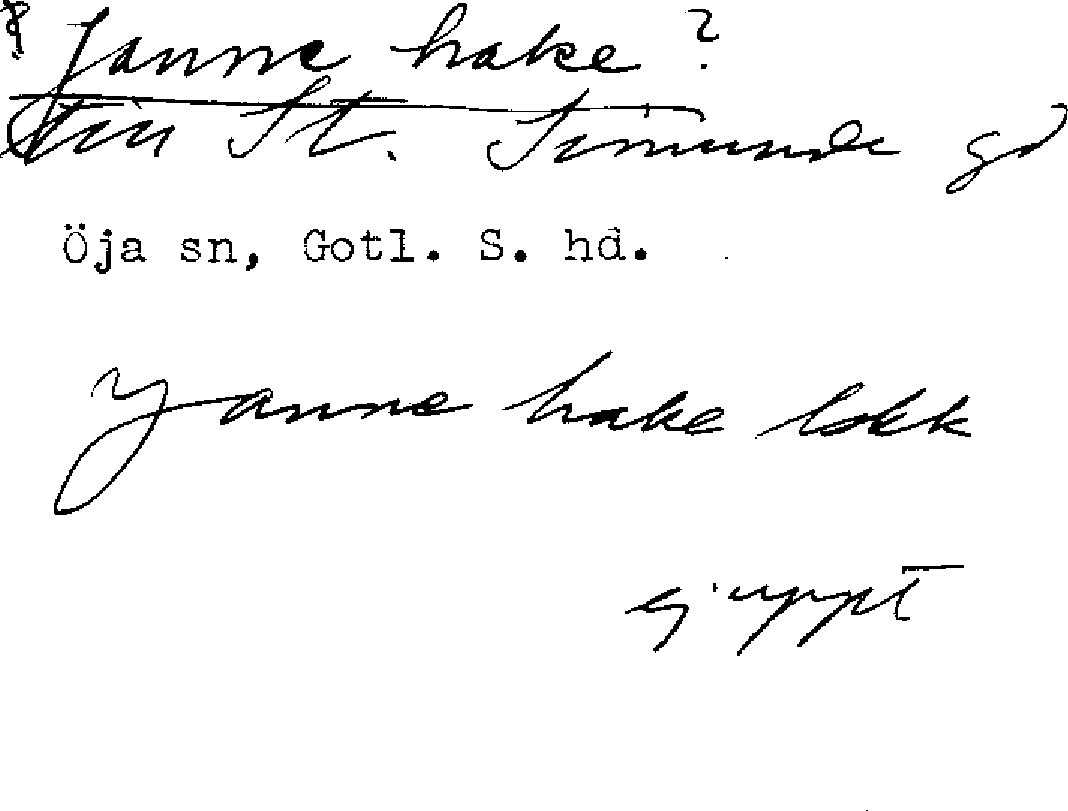 Janne hake ?
till St. Simunde gd
Öja sn, Gotl. S. hd.
Janne hake
ej uppt